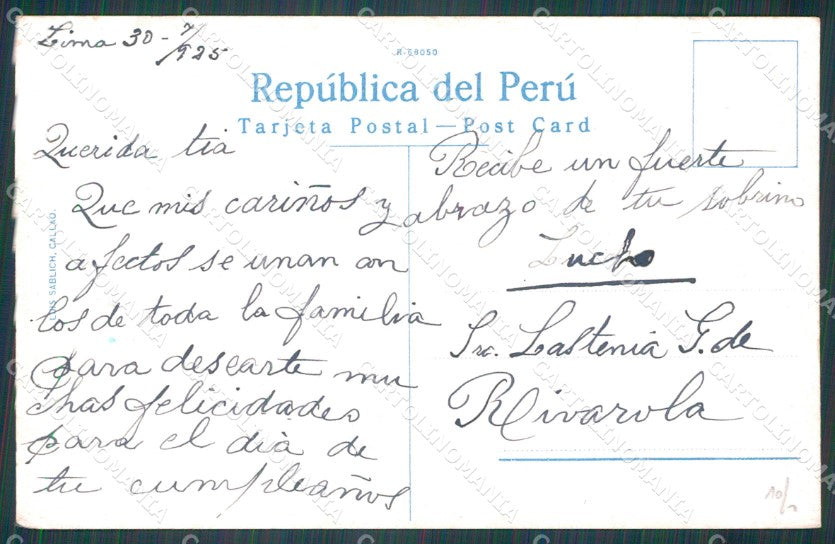 Lima 30-7/925
R-68050
República del Perú
Tarjeta Postal — Post Card
LUIS SABLICH, CALLAO.
Querida tia
Que mis cariños y
afectos se unan con
los de toda la familia
para desearte mu
chas felicidades
para el dia de
tu cumpleaños
Recibe un fuerte
abrazo de tu sobrino
Lucho
Sra. Lastenia G. de
Rivarola
10/-
CARTOLINOMANIA